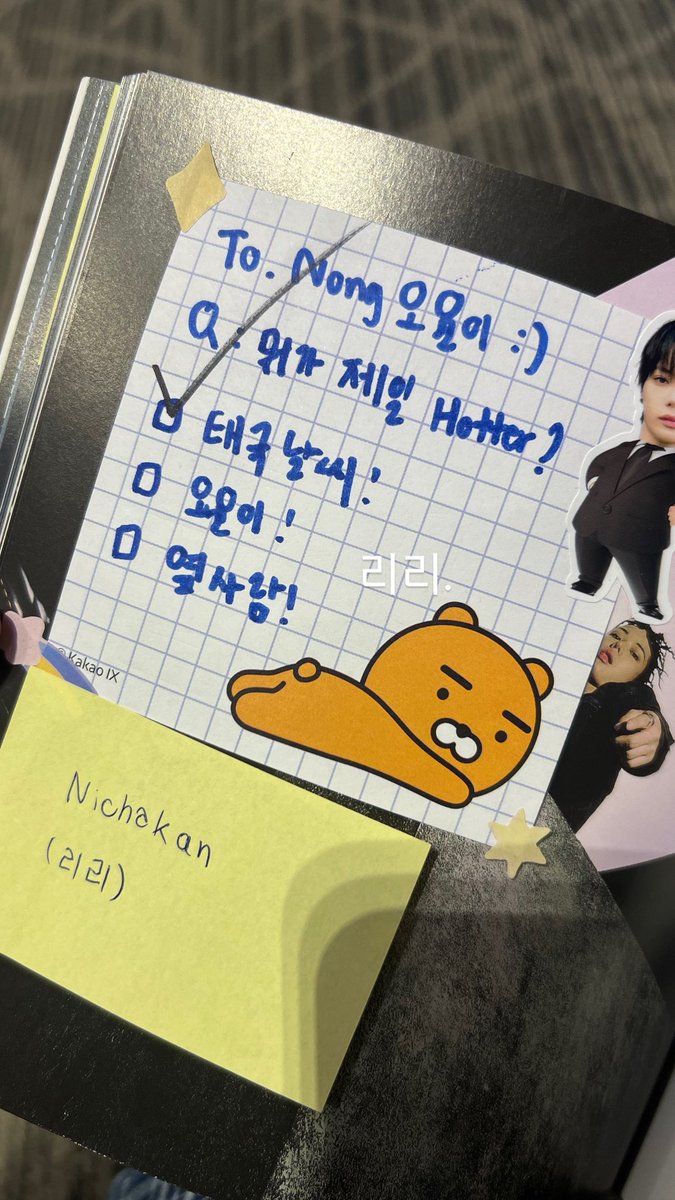 To. Nong 오욘이 :)
Q. 뭐가 제일 Hotter?
태국 날씨!
오욘이!
옆사람!
리리.
© Kakao IX
Nichakan
(리리)